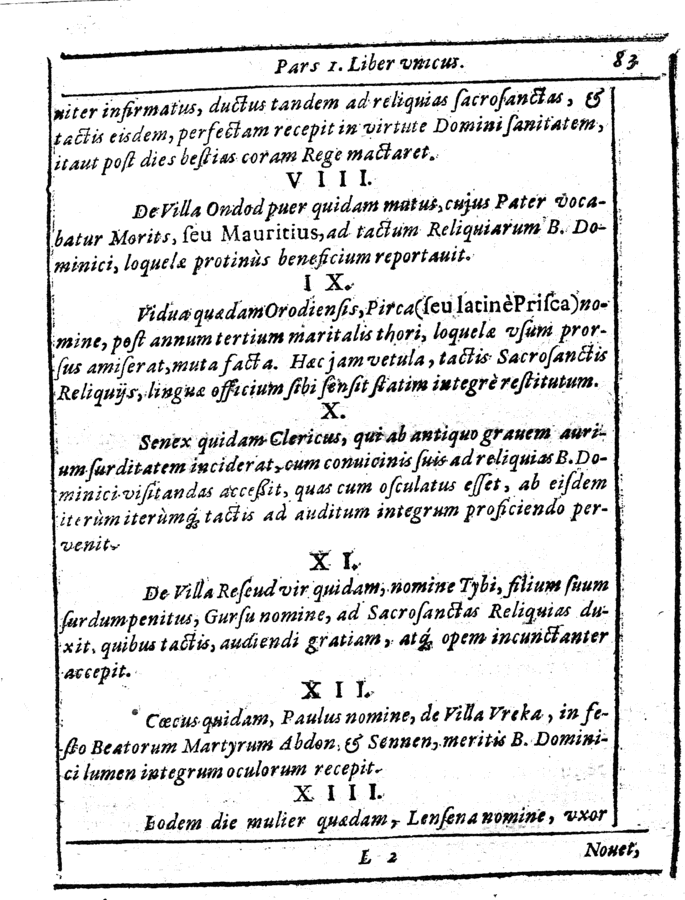 Pars 1. Liber vnicus. 83
niter infirmatus, ductus tandem ad reliquias ſacroſanctas, &
tactis eisdem, perfectam recepit in virtute Domini ſanitatem,
itaut poſt dies beſtias coram Rege mactaret.
VIII.
De Villa Ondod puer quidam mutus, cujus Pater voca-
batur Morits, ſeu Mauritius, ad tactum Reliquiarum B. Do-
minici, loquelæ protinùs beneficium reportauit.
IX.
Vidua quædam Orodienſis, Pirca (ſeu latinè Priſca) no-
mine, poſt annum tertium maritalis thori, loquelæ vſum pror-
ſus amiſerat, muta facta. Hæc jam vetula, tactis Sacroſanctis
Reliquijs, linguæ officium ſibi ſenſit ſtatim integrè reſtitutum.
X.
Senex quidam Clericus, qui ab antiquo grauem auri-
um ſurditatem inciderat, cum conuicinis ſuis ad reliquias B. Do-
minici viſitandas acceßit, quas cum oſculatus eſſet, ab eiſdem
iterùm iterùmq; tactis ad auditum integrum proficiendo per-
venit.
XI.
De Villa Reſcud vir quidam, nomine Tybi, filium ſuum
ſurdum penitus, Gurſu nomine, ad Sacroſanctas Reliquias du-
xit, quibus tactis, audiendi gratiam, atq; opem incunctanter
accepit.
XII.
Cœcus quidam, Paulus nomine, de Villa Vreka, in fe-
ſto Beatorum Martyrum Abdon, & Sennen, meritis B. Domini-
ci lumen integrum oculorum recepit.
XIII.
Eodem die mulier quædam, Lenſena nomine, vxor
L 2 Nouet,